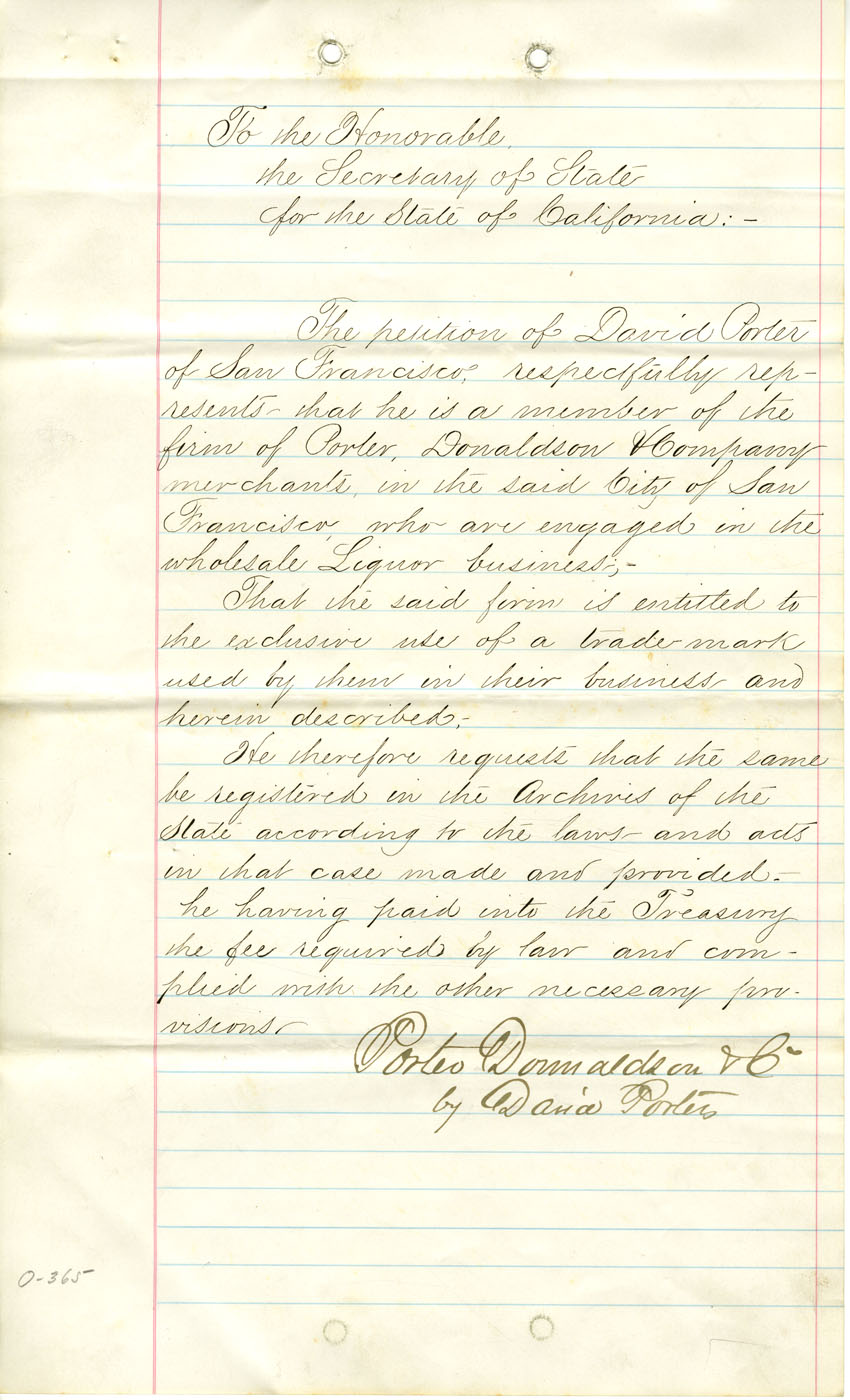 To the Honorable,
the Secretary of State
for the State of California:-
The petition of David Porter
of San Francisco, respectfully rep-
resents that he is a member of the
firm of Porter, Donaldson & Company
merchants, in the said City of San
Francisco, who are engaged in the
wholesale Liquor business;-
That the said firm is entitled to
the exclusive use of a trade-mark
used by them in their business and
herein described,-
He therefore requests that the same
be registered in the Archives of the
State according to the laws and acts
in that case made and provided.-
he having paid into the Treasury
the fee required by law and com-
plied with the other necessary pro-
visions
Porter Donnaldson & Co
by David Porter
0-365